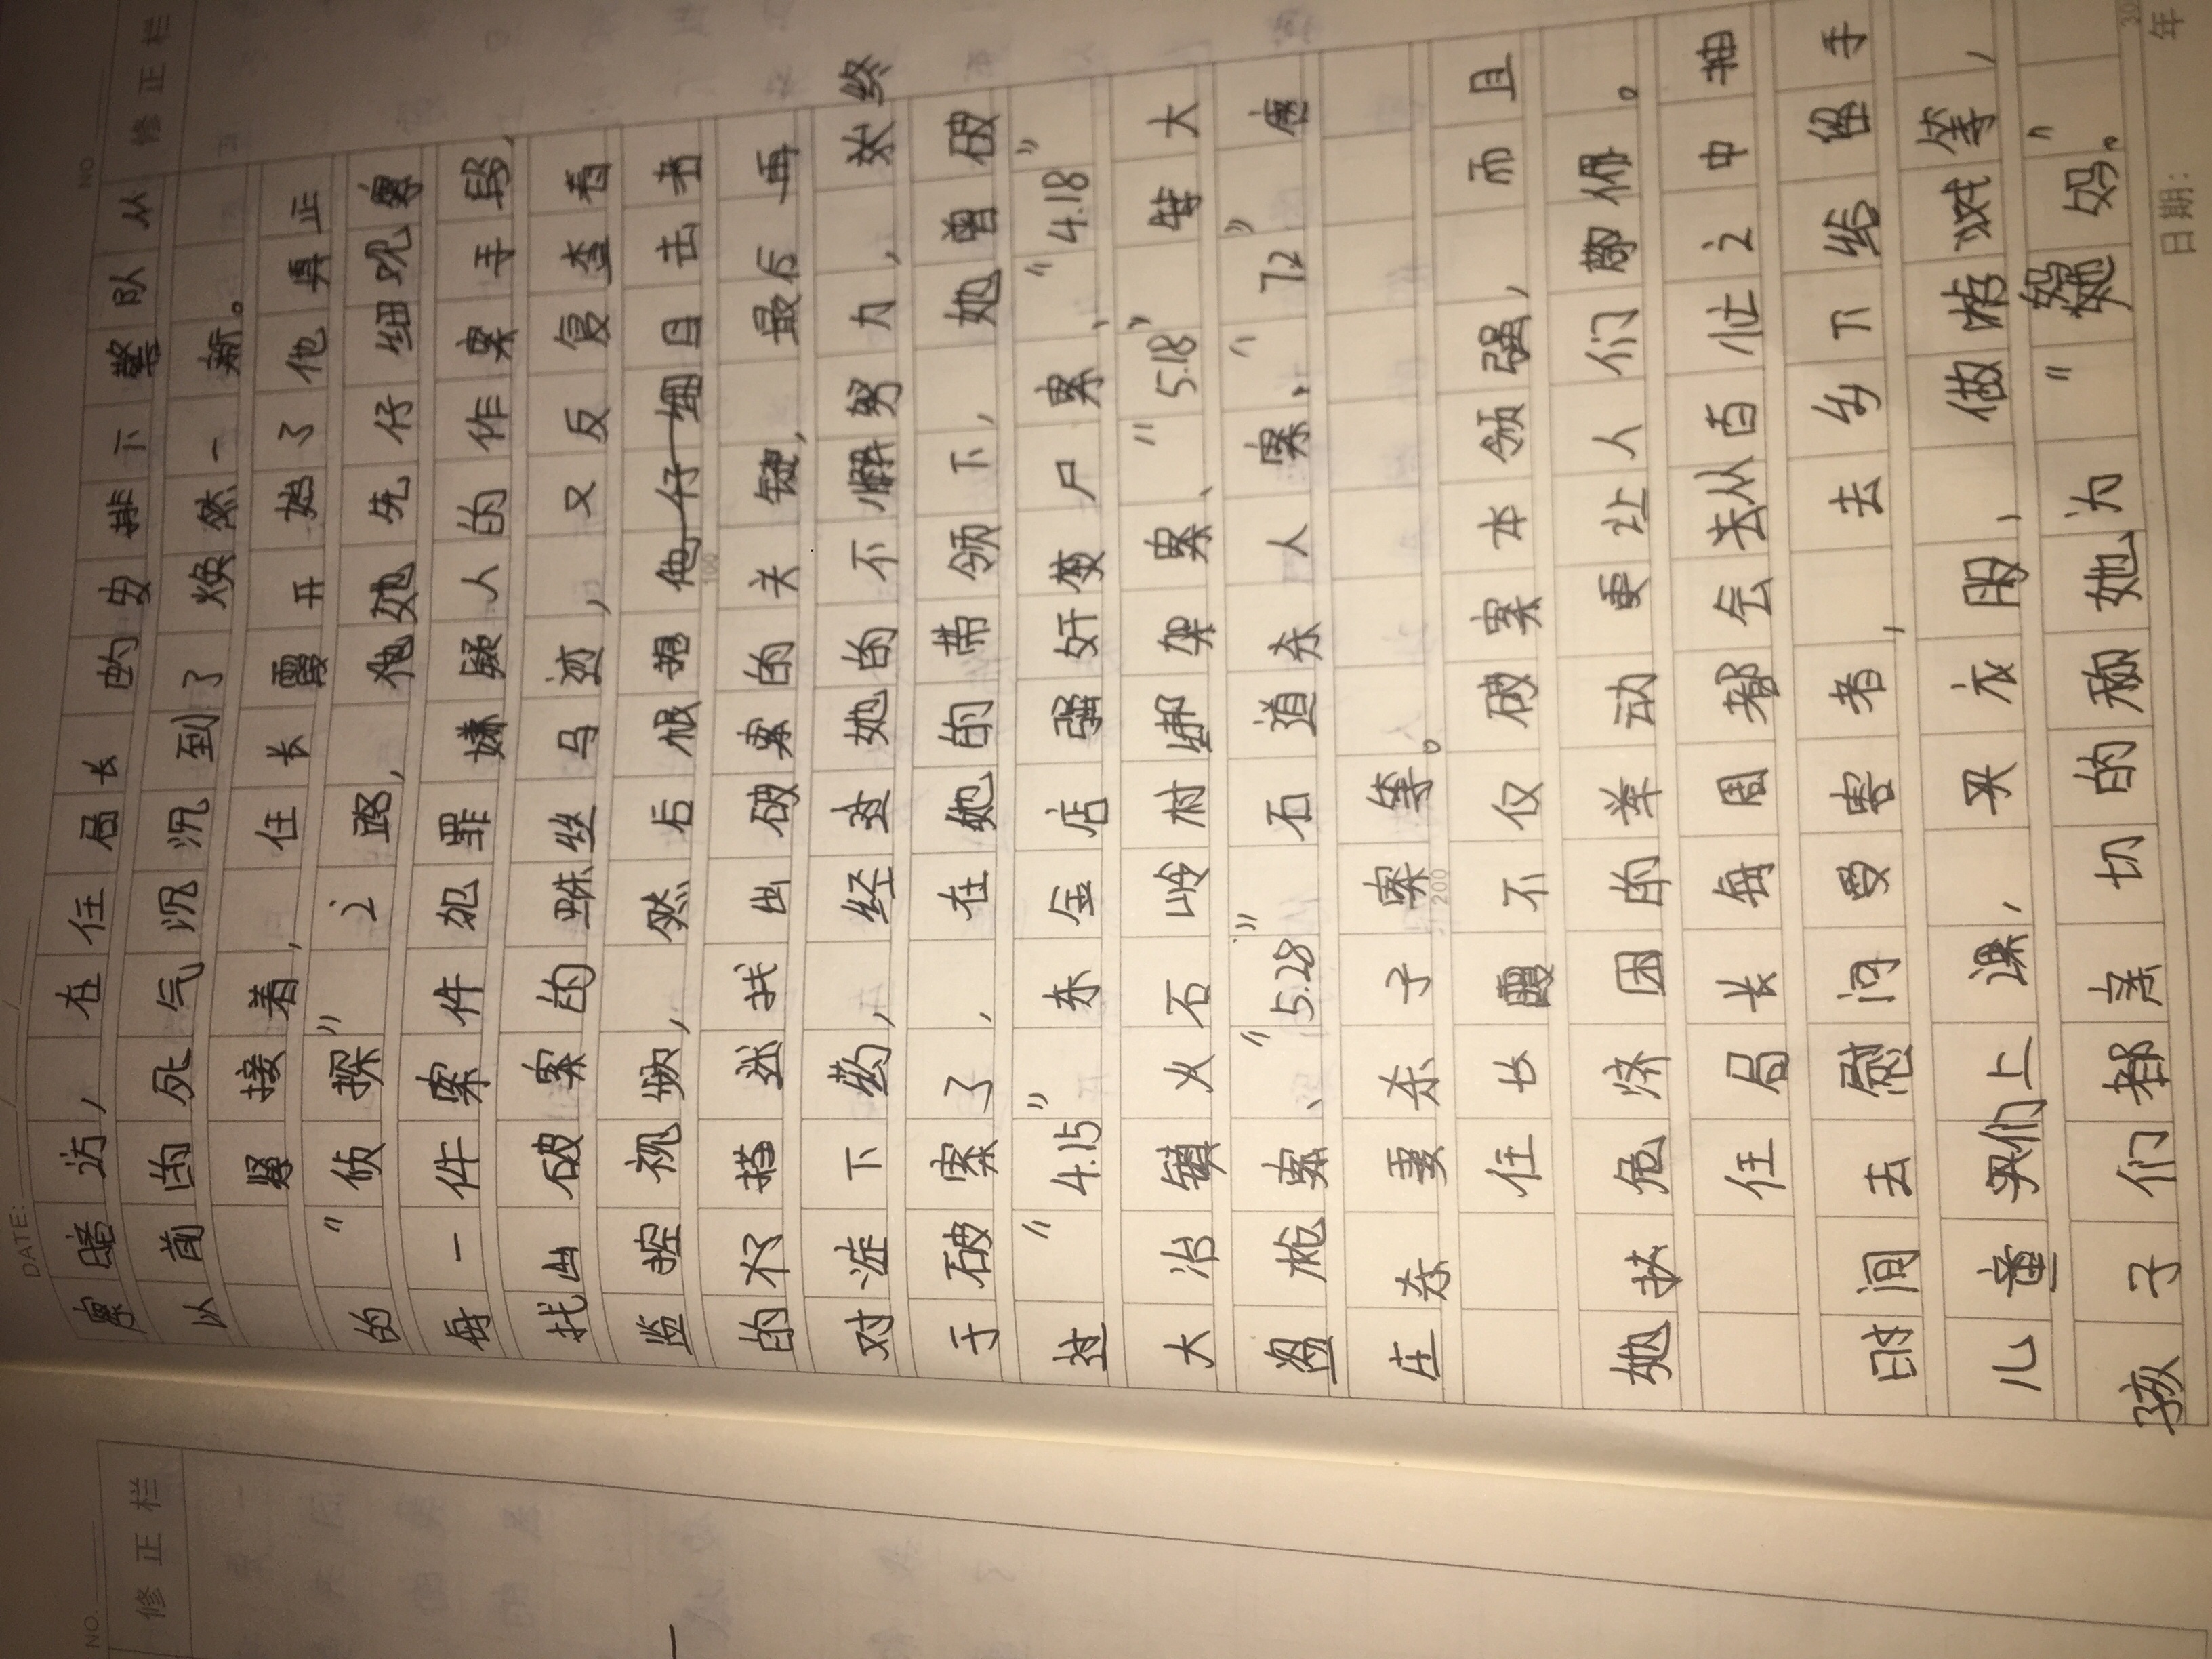 察暗访，在任局长的安排下警队从
以前的死气沉沉到了焕然一新。
紧接着，任长霞开始了他真正
的“侦探”之路，她先仔细观察
每一件案件犯罪嫌疑人的作案手段，
找出破案的蛛丝马迹，又反复查看
监控视频，然后根据他仔细目击者
的描述找出破案的关键，最后再
对症下药，经过她的不懈努力，终
于破案了，在她的带领下，她曾破
过“4.15”东金店强奸焚尸案、“4.18”
大冶镇火石岭村绑架案、“5.18”特大
盗枪案、“5.28”石道杀人案、“72”唐
庄杀妻杀子案等。
任长霞不仅破案本领强，而且
她扶危济困的举动更让人们敬佩。
任局长每周都会去从百忙之中抽
时间去慰问受害者，去乡下给留手
儿童们上课，买衣服、做游戏等，
孩子们都亲切的称她为“妈妈”。
DATE:
NO
修正栏
100
200
300
日期：
年
NO.
修正栏